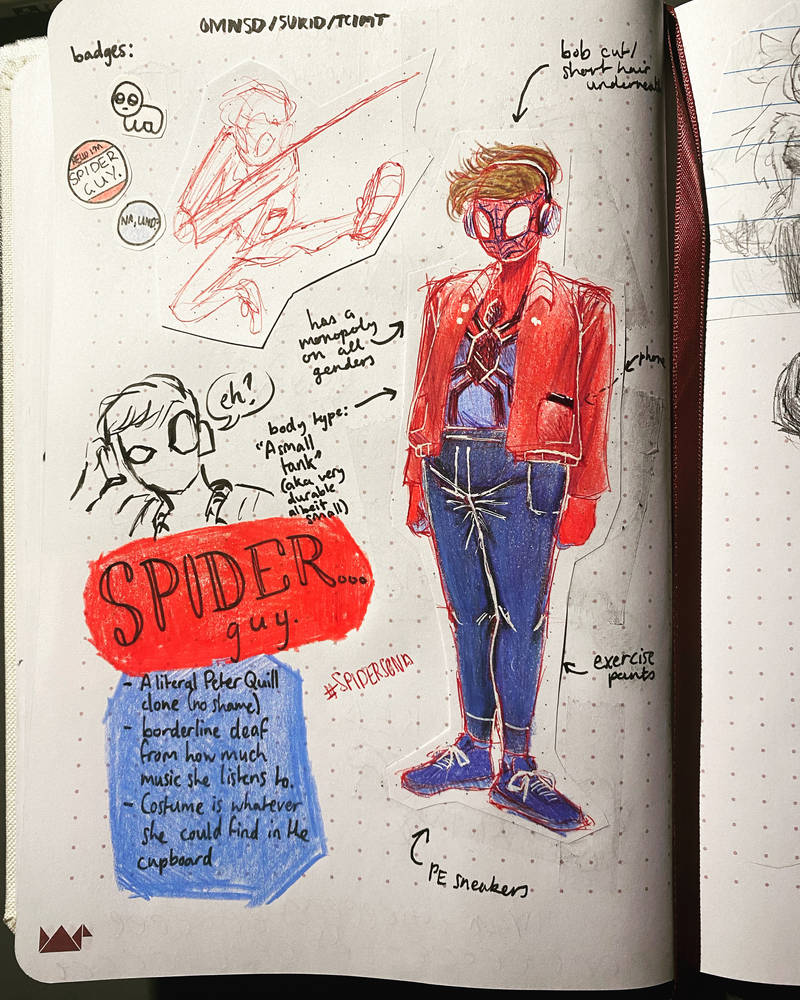 OMNSD/SUKID/TCIMT
badges:
HELLO I'M
SPIDER
GUY.
bob cut/
short hair
underneath
has a
monopoly
on all
genders
phone
eh?
body type:
"A small
tank"
(aka very
durable
albeit
small)
SPIDER...
guy.
#SPIDERSONA
exercise
pants
- A literal Peter Quill
clone (no shame)
- borderline deaf
from how much
music she listens to.
- Costume is whatever
she could find in the
cupboard
PE sneakers